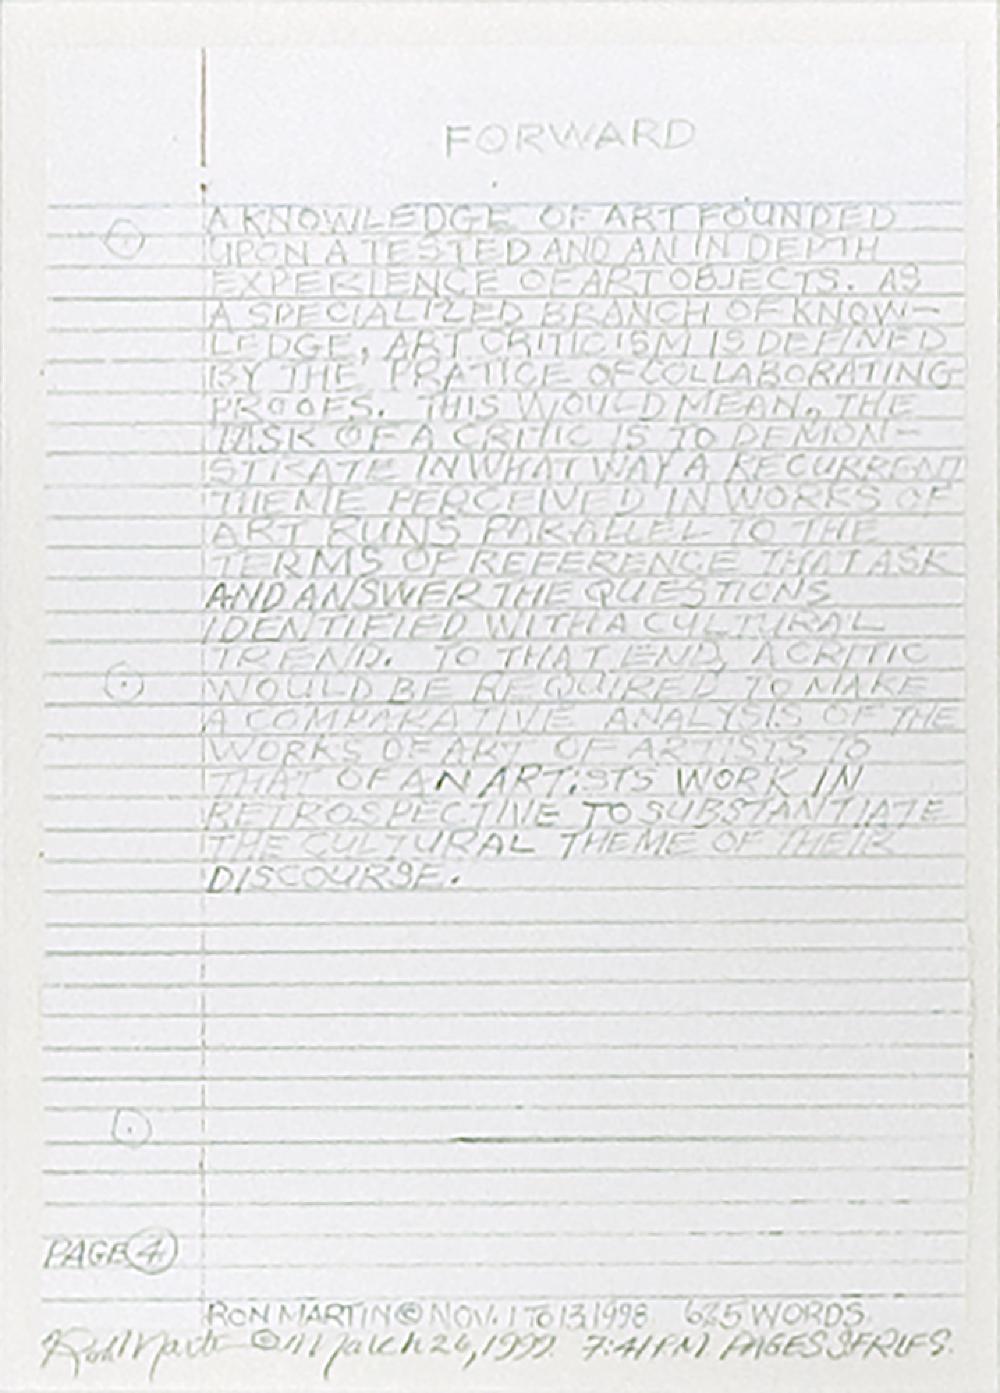 FORWARD
A KNOWLEDGE OF ART FOUNDED
UPON A TESTED AND AN IN DEPTH
EXPERIENCE OF ART OBJECTS. AS
A SPECIALIZED BRANCH OF KNOW-
LEDGE, ART CRITICISM IS DEFINED
BY THE PRATICE OF COLLABORATING
PROOFS. THIS WOULD MEAN, THE
TASK OF A CRITIC IS TO DEMON-
STRATE IN WHAT WAY A RECURRENT
THEME PERCEIVED IN WORKS OF
ART RUNS PARALLEL TO THE
TERMS OF REFERENCE THAT ASK
AND ANSWER THE QUESTIONS
IDENTIFIED WITH A CULTURAL
TREND. TO THAT END, A CRITIC
WOULD BE REQUIRED TO MAKE
A COMPARATIVE ANALYSIS OF THE
WORKS OF ART OF ARTISTS TO
THAT OF AN ARTISTS WORK IN
RETROSPECTIVE TO SUBSTANTIATE
THE CULTURAL THEME OF THEIR
DISCOURSE.
PAGE 4
RON MARTIN © NOV. 1 TO 13, 1998 625 WORDS.
Ron Martin © March 26, 1999. 7:41 PM PAGES SERIES.